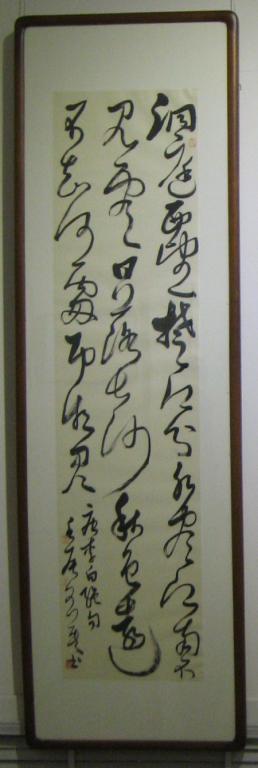 洞庭西望楚江分水尽江南不
见云日落长沙秋色远
不知何处吊湘君
唐李白绝句